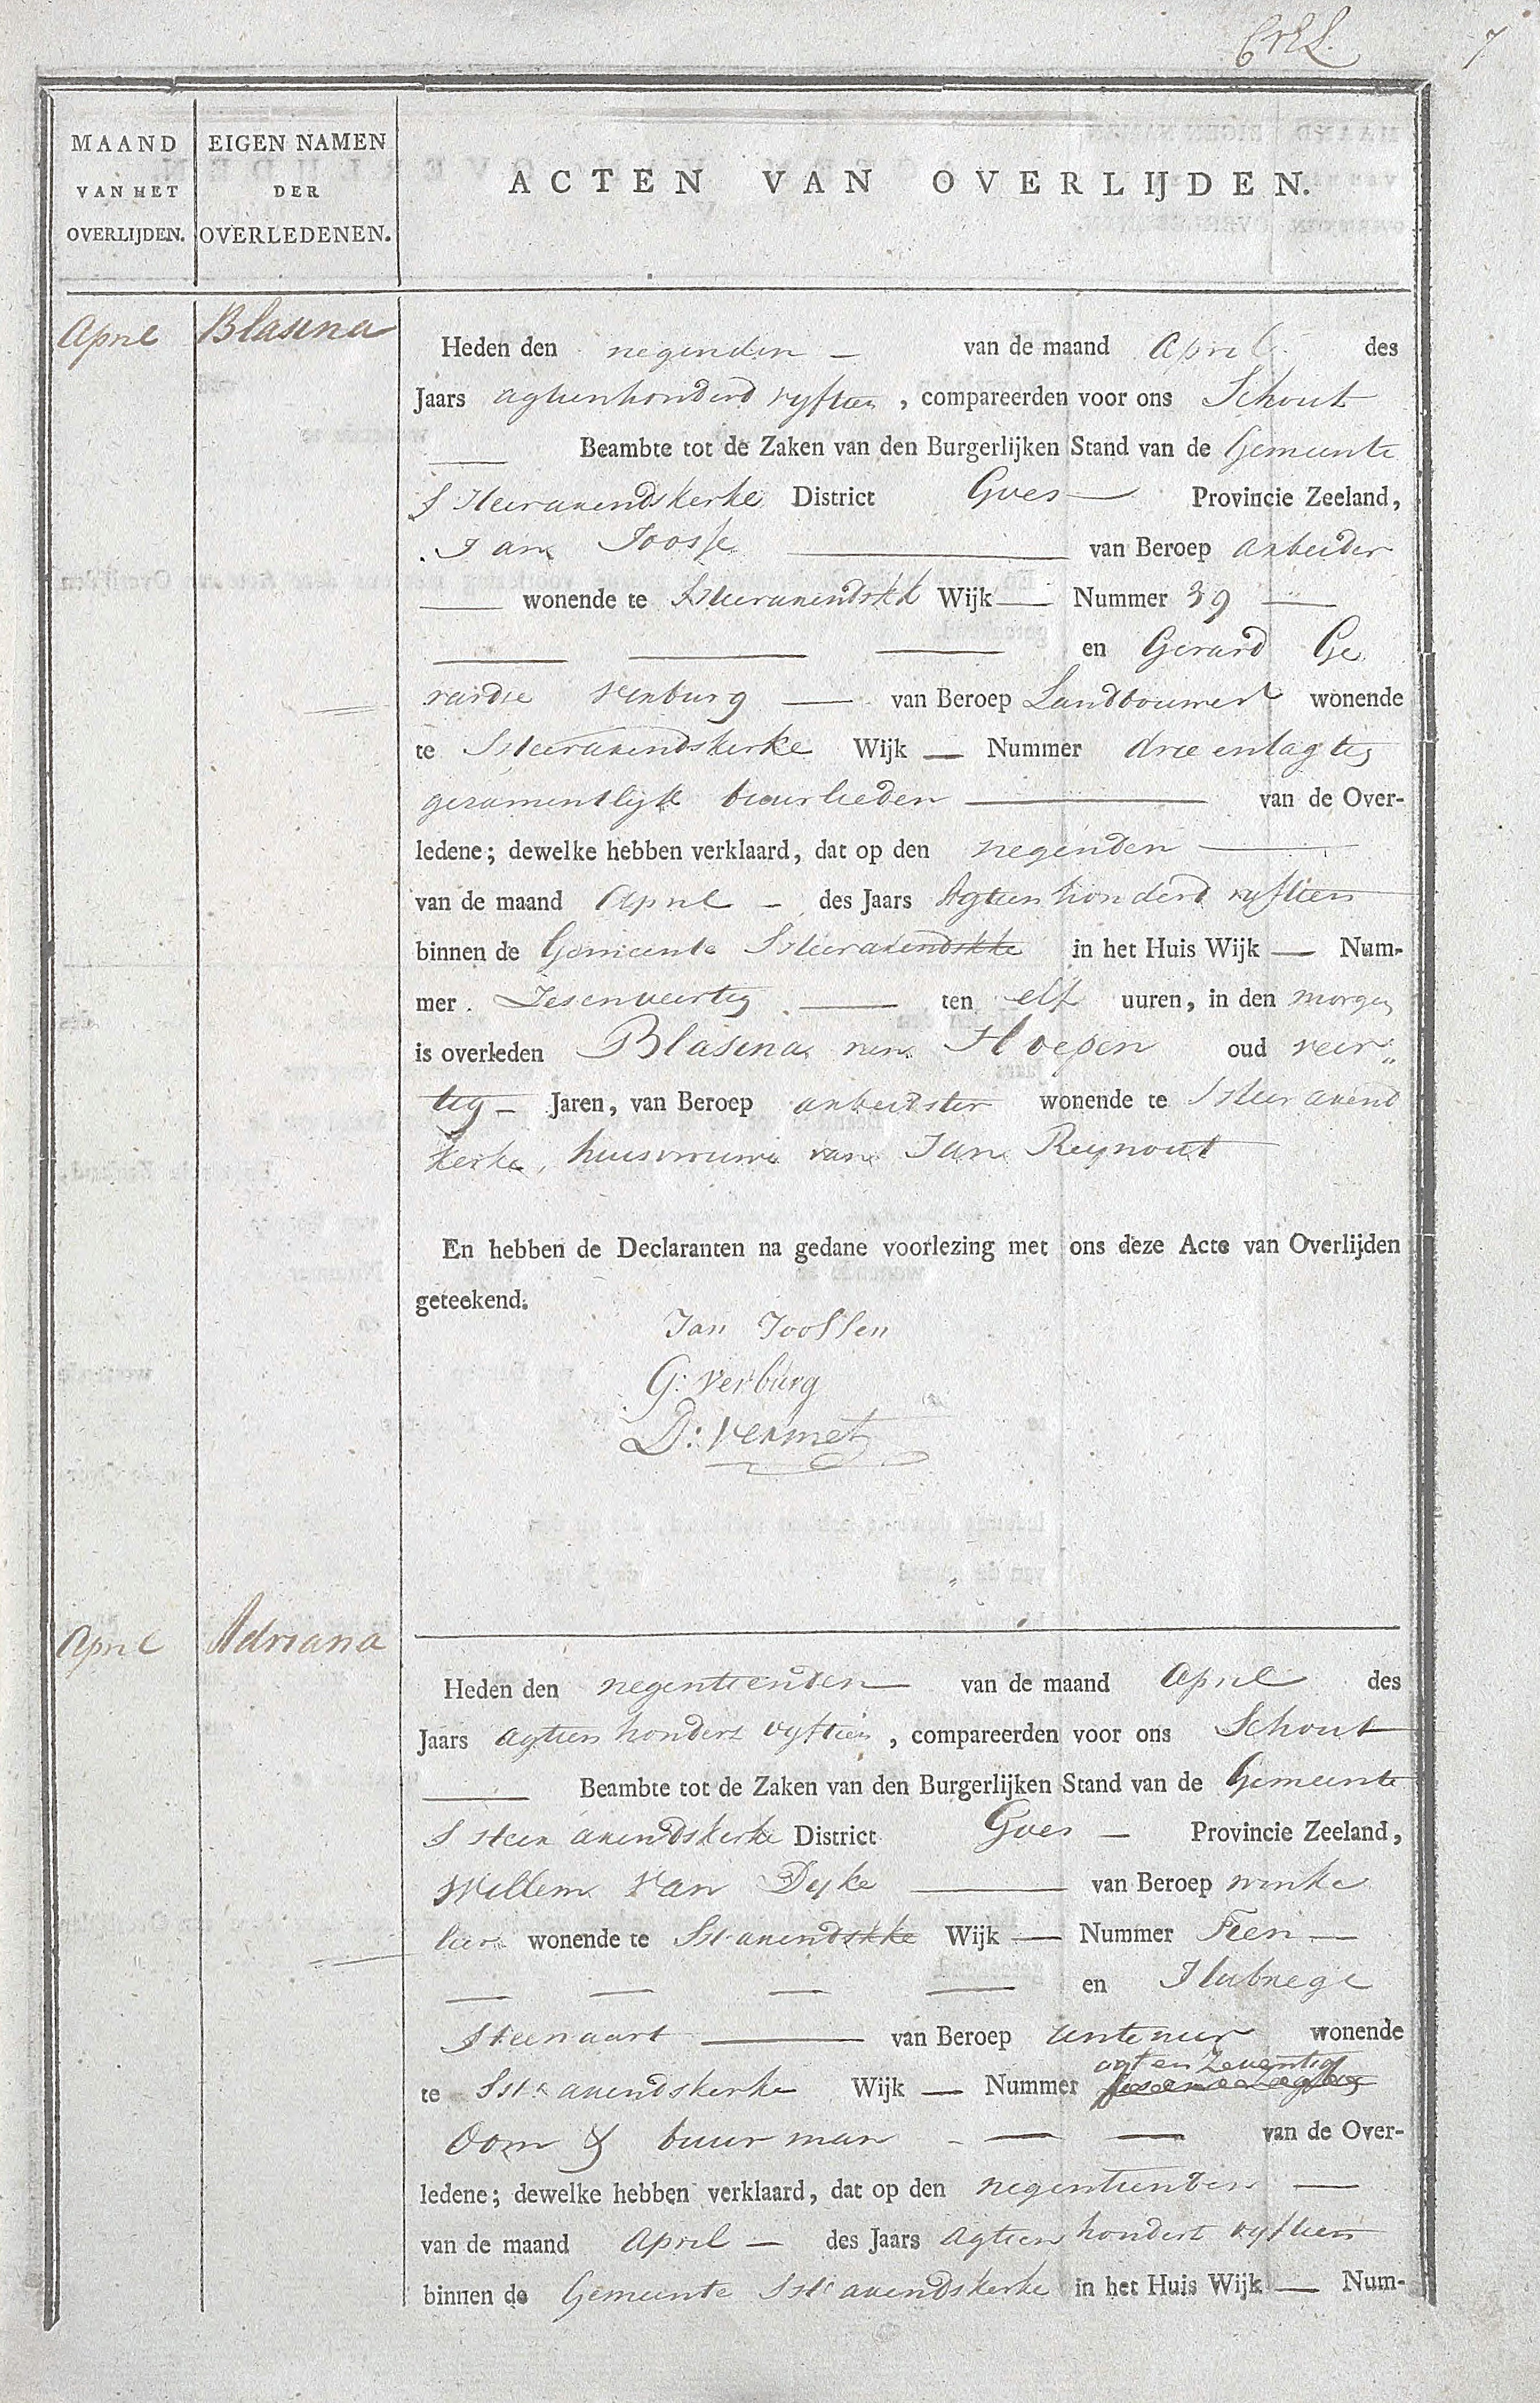 7
MAAND VAN HET OVERLIJDEN.
EIGEN NAMEN DER OVERLEDENEN.
ACTEN VAN OVERLIJDEN.
April
Blasina
Heden den negenden van de maand April des
Jaars agtienhonderd vyftien, compareerden voor ons Schout
Beambte tot de Zaken van den Burgerlijken Stand van de Gemeente
S Heerarendskerke District Goes Provincie Zeeland,
Jan Joosse van Beroep arbeider
wonende te SHeerarendskk Wijk Nummer 39
en Gerard Ge
rardse Verburg van Beroep Landbouwer wonende
te SHeerarendskerke Wijk Nummer drie entagtig
gezamentlijk buurlieden van de Over-
ledene; dewelke hebben verklaard, dat op den negenden
van de maand April des Jaars Agtien honderd vyftien
binnen de Gemeente SHeerarendskke in het Huis Wijk Num-
mer Zesenveertig ten elf uuren, in den morgen
is overleden Blasina van Hoepen oud veer
tig Jaren, van Beroep arbeidster wonende te SHeer arend
kerke, huisvrouw van Jan Reynout
En hebben de Declaranten na gedane voorlezing met ons deze Acte van Overlijden
geteekend.
Jan Joossen
G: Verburg
D: Vermet
April
Adriana
Heden den negentienden van de maand April des
Jaars agtien hondert vyftien, compareerden voor ons Schout
Beambte tot de Zaken van den Burgerlijken Stand van de Gemeente
S Heer arendskerke District Goes Provincie Zeeland,
Willem Van Dyke van Beroep winke
lier wonende te SH arendskke Wijk Nummer Tien
en
Steenaart van Beroep wonende
te SHr arendskerke Wijk Nummer agt en Zeventig
Oom & buurman van de Over-
ledene; dewelke hebben verklaard, dat op den negentienden
van de maand April des Jaars agtien hondert vyftien
binnen de Gemeente SHr arendskerke in het Huis Wijk Num-